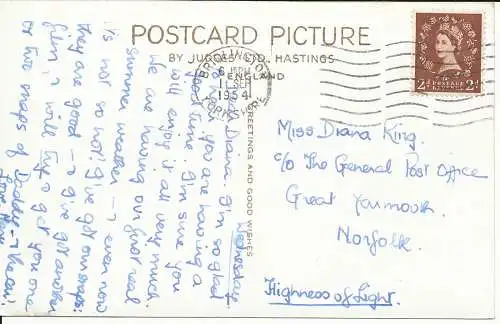 POSTCARD PICTURE
BY JUDGES LTD., HASTINGS
ENGLAND
BRIDLINGTON
SEP
1954
YORKSHIRE
2D 2D
GREETINGS AND GOOD WISHES
Wednesday
Dear Diana. I'm so glad
you are having a
good time. I'm sure you
will enjoy it all very much.
We are having our first real
summer weather → even now
it's not so hot! I've got our snaps:
they are good → I've got another
film, I will try & get you one
or two snaps of Diddy
Miss Diana King,
c/o The General Post Office
Great Yarmouth,
Norfolk.
Highness of Light.